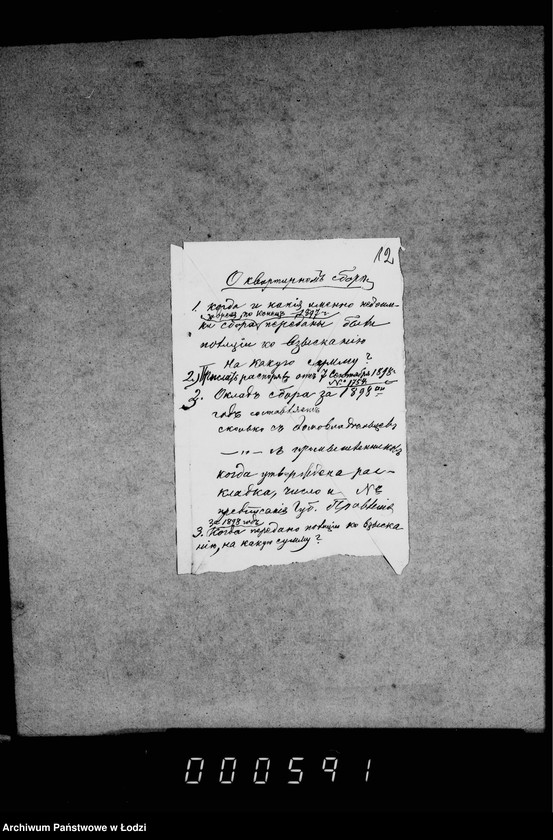 12
О квартирномъ сборѣ
1. когда и какія именно недоим-
за время по конецъ 1897 г
ки сбора переданы были
полиціи ко взысканію
на какую сумму?
2.) Прислать распоряж отъ 7 Сентября 1898
№ 1754
3. Окладъ сбора за 1898 ой
годъ составляетъ
сколько съ домовладѣльцевъ
— „ — съ промышленниковъ
когда утверждена рас-
кладка, число и №
предписанія Губ. Правленія
за 1898 годъ
3. Когда передано полиціи ко взыска
нію, на какую сумму?
000591
Archiwum Państwowe w Łodzi